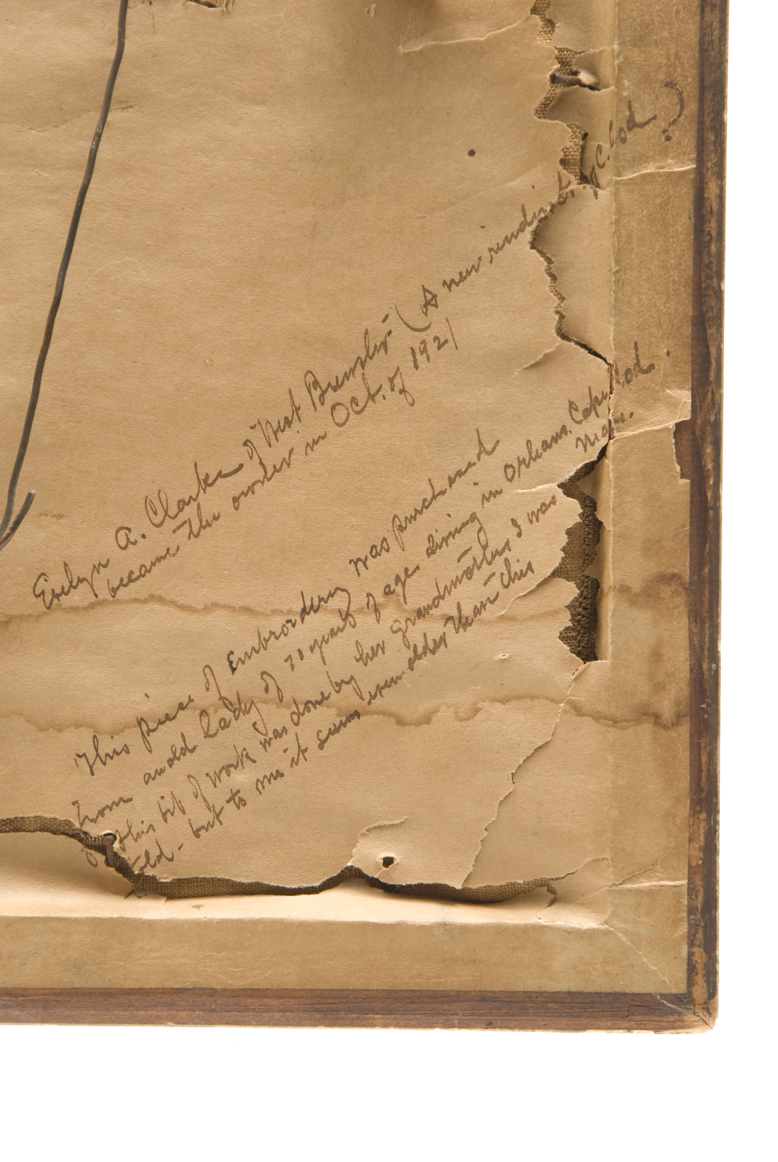 Evelyn A. Clarke of West Brewster (A new resident of C. Cod.)
became the owner in Oct. of 1921
This piece of embroidery was purchased
from an old lady of 70 years of age living in Orleans. Cape Cod.
Mass.
This bit of work was done by her grandmother I was
told - but to me it seems even older than this